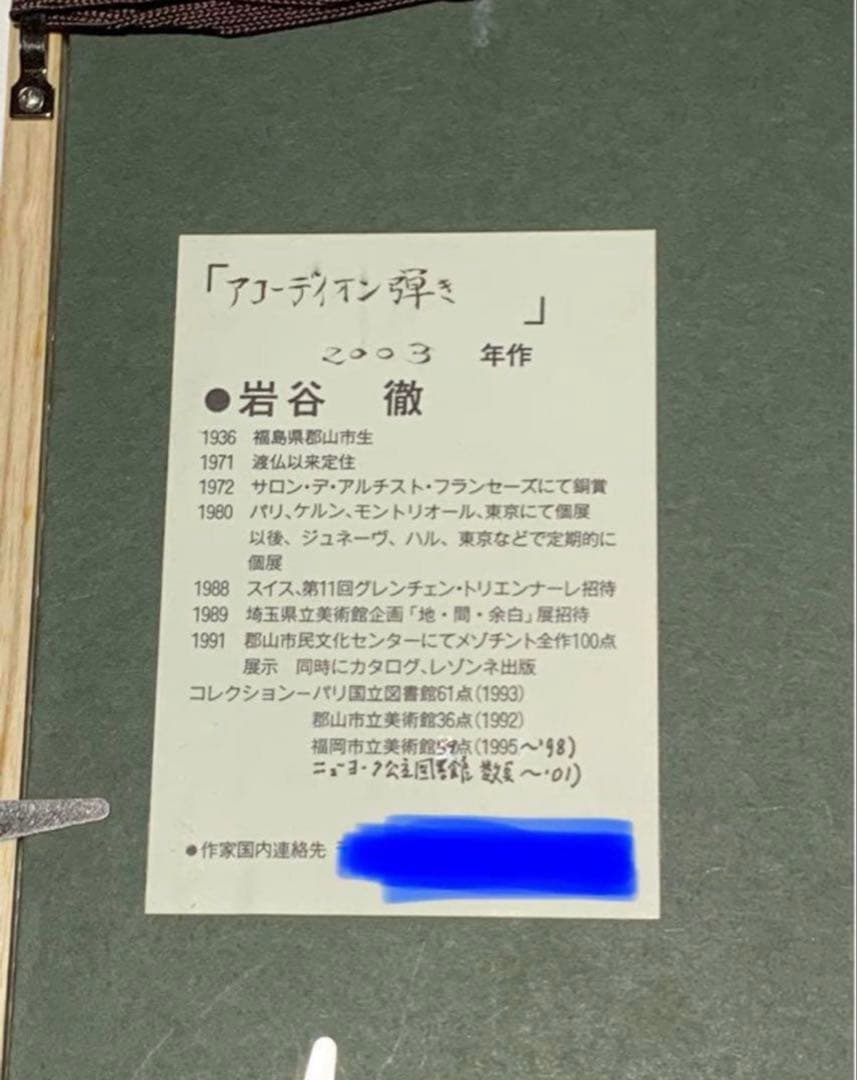 「アコーディオン弾き」
2003 年作
●岩谷 徹
1936 福島県郡山市生
1971 渡仏以来定住
1972 サロン・デ・アルチスト・フランセーズにて銅賞
1980 パリ、ケルン、モントリオール、東京にて個展
以後、ジュネーヴ、ハル、東京などで定期的に
個展
1988 スイス、第11回グレンチェン・トリエンナーレ招待
1989 埼玉県立美術館企画「地・間・余白」展招待
1991 郡山市民文化センターにてメゾチント全作100点
展示 同時にカタログ、レゾンネ出版
コレクションーパリ国立図書館61点(1993)
郡山市立美術館36点(1992)
福岡市立美術館 点(1995〜'98)
ニューヨーク公立図書館 数点 〜'01)
●作家国内連絡先